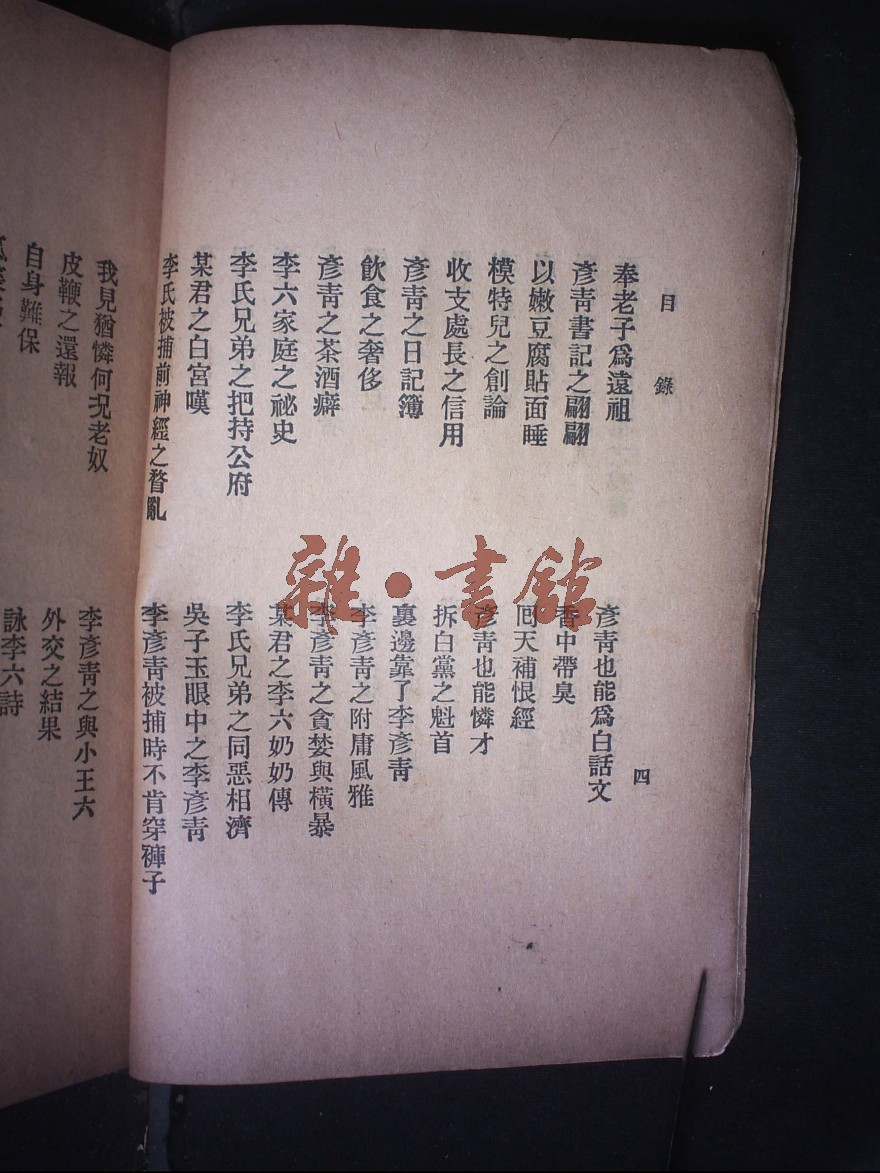 目錄
奉老子爲遠祖
彥青書記之翩翩
以嫩豆腐貼面睡
模特兒之創論
收支處長之信用
彥青之日記簿
飲食之奢侈
彥青之茶酒癖
李六家庭之祕史
李氏兄弟之把持公府
某君之白宮嘆
李氏被捕前神經之瞀亂
四
彥青也能爲白話文
香中帶臭
回天補恨經
彥青也能憐才
拆白黨之魁首
裏邊靠了李彥青
李彥青之附庸風雅
李彥青之貪婪與橫暴
某君之李六奶奶傳
李氏兄弟之同惡相濟
吳子玉眼中之李彥青
李彥青被捕時不肯穿褲子
我見猶憐何况老奴
皮鞭之還報
自身難保
李彥青之與小王六
外交之結果
詠李六詩
雜·書館